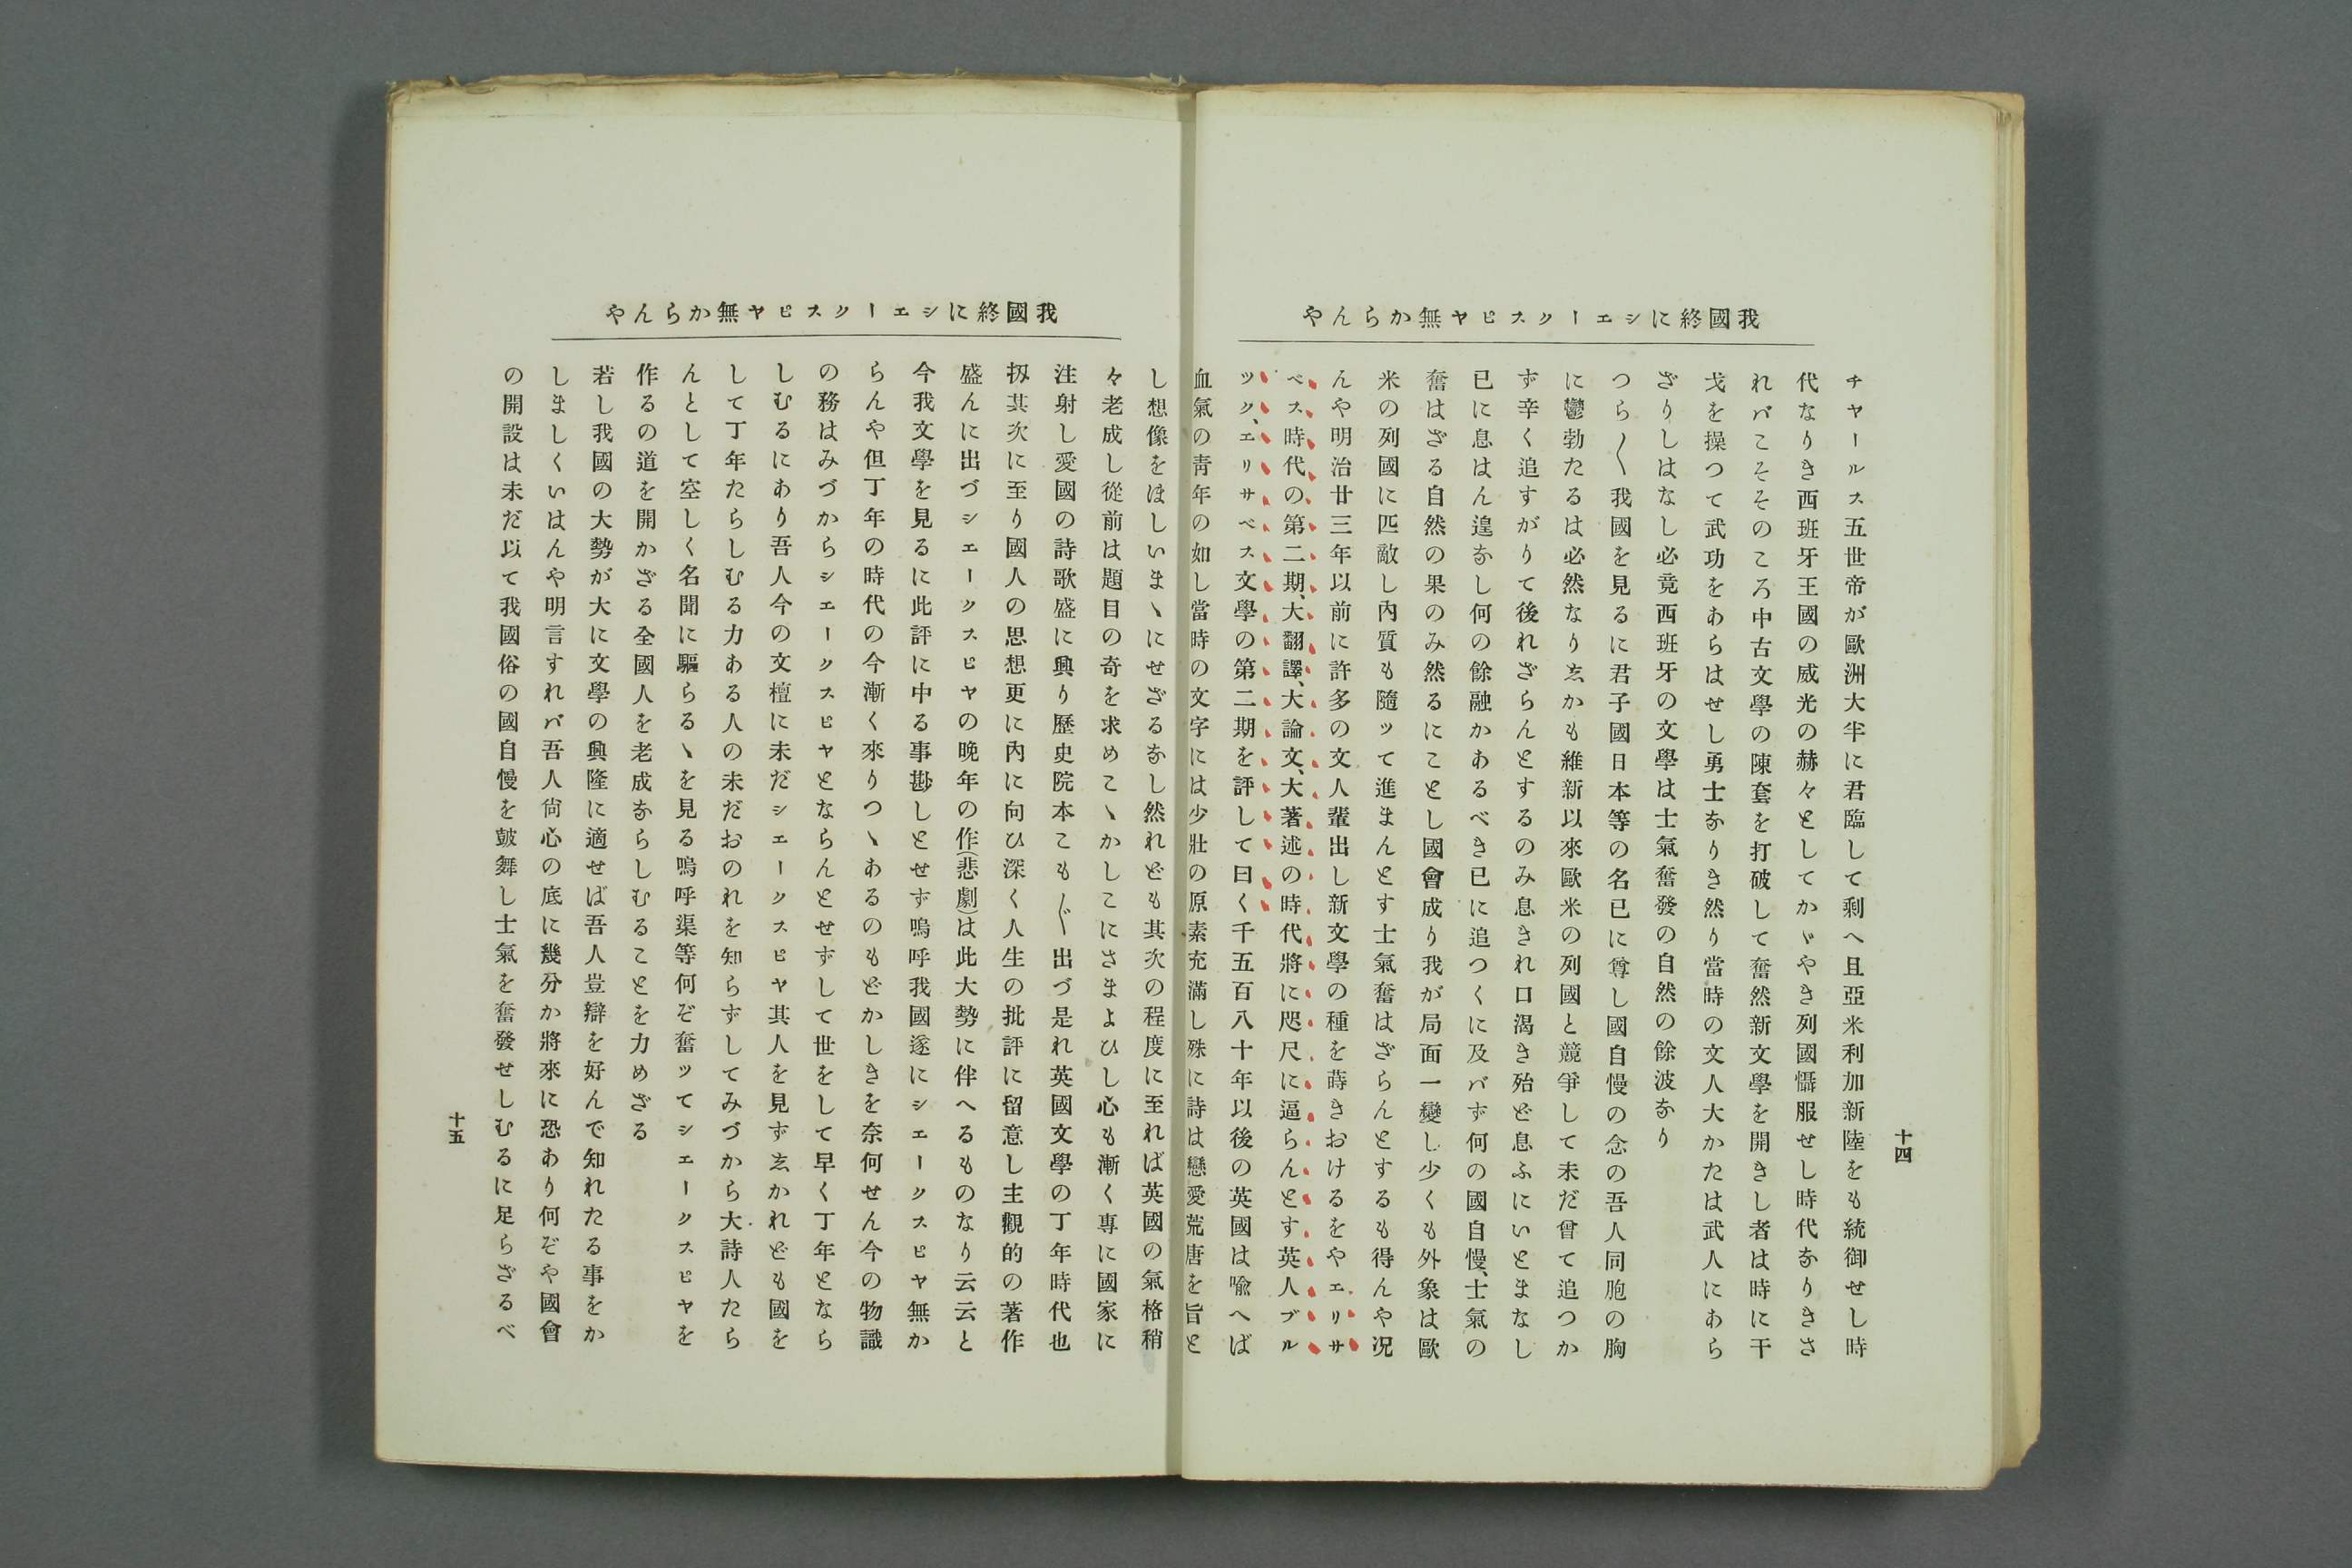 我國終にシエークスピヤ無からんや
十四
チヤールス五世帝が歐洲大半に君臨して剩へ且亞米利加新陸をも統御せし時
代なりき西班牙王國の威光の赫々としてかゞやき列國懾服せし時代なりきさ
れバこそそのころ中古文學の陳套を打破して奮然新文學を開きし者は時に干
戈を操つて武功をあらはせし勇士なりき然り當時の文人大かたは武人にあら
ざりしはなし必竟西班牙の文學は士氣奮發の自然の餘波なり
つら〱我國を見るに君子國日本等の名已に尊し國自慢の念の吾人同胞の胸
に鬱勃たるは必然なりゑかも維新以來歐米の列國と競爭して未だ曾て追つか
ず辛く追すがりて後れざらんとするのみ息きれ口渴き殆ど息ふにいとまなし
已に息はん遑なし何の餘融かあるべき已に追つくに及バず何の國自慢、士氣の
奮はざる自然の果のみ然るにことし國會成り我が局面一變し少くも外象は歐
米の列國に匹敵し內質も隨ッて進まんとす士氣奮はざらんとするも得んや况
んや明治廿三年以前に許多の文人輩出し新文學の種を蒔きおけるをやエリサ
ベス時代の第二期、大翻譯、大論文、大著述の時代將に咫尺に逼らんとす英人ブル
ツク、エリサベス文學の第二期を評して曰く千五百八十年以後の英國は喩へば
血氣の靑年の如し當時の文字には少壯の原素充滿し殊に詩は戀愛荒唐を旨と
我國終にシエークスピヤ無からんや
し想像をほしいまゝにせざるなし然れども其次の程度に至れば英國の氣格稍
々老成し從前は題目の奇を求めこゝかしこにさまよひし心も漸く專に國家に
注射し愛國の詩歌盛に興り歷史院本こも〲出づ是れ英國文學の丁年時代也
扨其次に至り國人の思想更に內に向ひ深く人生の批評に留意し主觀的の著作
盛んに出づシエークスピヤの晚年の作(悲劇)は此大勢に伴へるものなり云云と
今我文學を見るに此評に中る事尠しとせず嗚呼我國遂にシエークスピヤ無か
らんや但丁年の時代の今漸く來りつゝあるのもどかしきを奈何せん今の物識
の務はみづからシエークスピヤとならんとせずして世をして早く丁年となら
しむるにあり吾人今の文檀に未だシエークスピヤ其人を見ずゑかれども國を
して丁年たらしむる力ある人の未だおのれを知らずしてみづから大詩人たら
んとして空しく名聞に驅らるゝを見る嗚呼渠等何ぞ奮ッてシエークスピヤを
作るの道を開かざる全國人を老成ならしむることを力めざる
若し我國の大勢が大に文學の興隆に適せば吾人豈辯を好んで知れたる事をか
しましくいはんや明言すれバ吾人尙心の底に幾分か將來に恐あり何ぞや國會
の開設は未だ以て我國俗の國自慢を皷舞し士氣を奮發せしむるに足らざるべ
十五